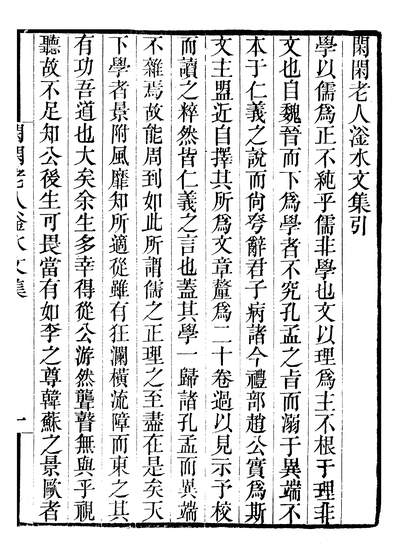 閑閑老人滏水文集引
學以儒爲正不純乎儒非學也文以理爲主不根于理非
文也自魏晉而下爲學者不究孔孟之旨而溺于異端不
本于仁義之說而尙夸辭君子病諸今禮部趙公實爲斯
文主盟近自擇其所爲文章釐爲二十卷過以見示予校
而讀之粹然皆仁義之言也蓋其學一歸諸孔孟而異端
不雜焉故能周到如此所謂儒之正理之至盡在是矣天
下學者景附風靡知所適從雖有狂瀾橫流障而東之其
有功吾道也大矣余生多幸得從公游然聾瞽無與乎視
聽故不足知公後生可畏當有如李之尊韓蘇之景歐者
閑閑老人滏水文集
一